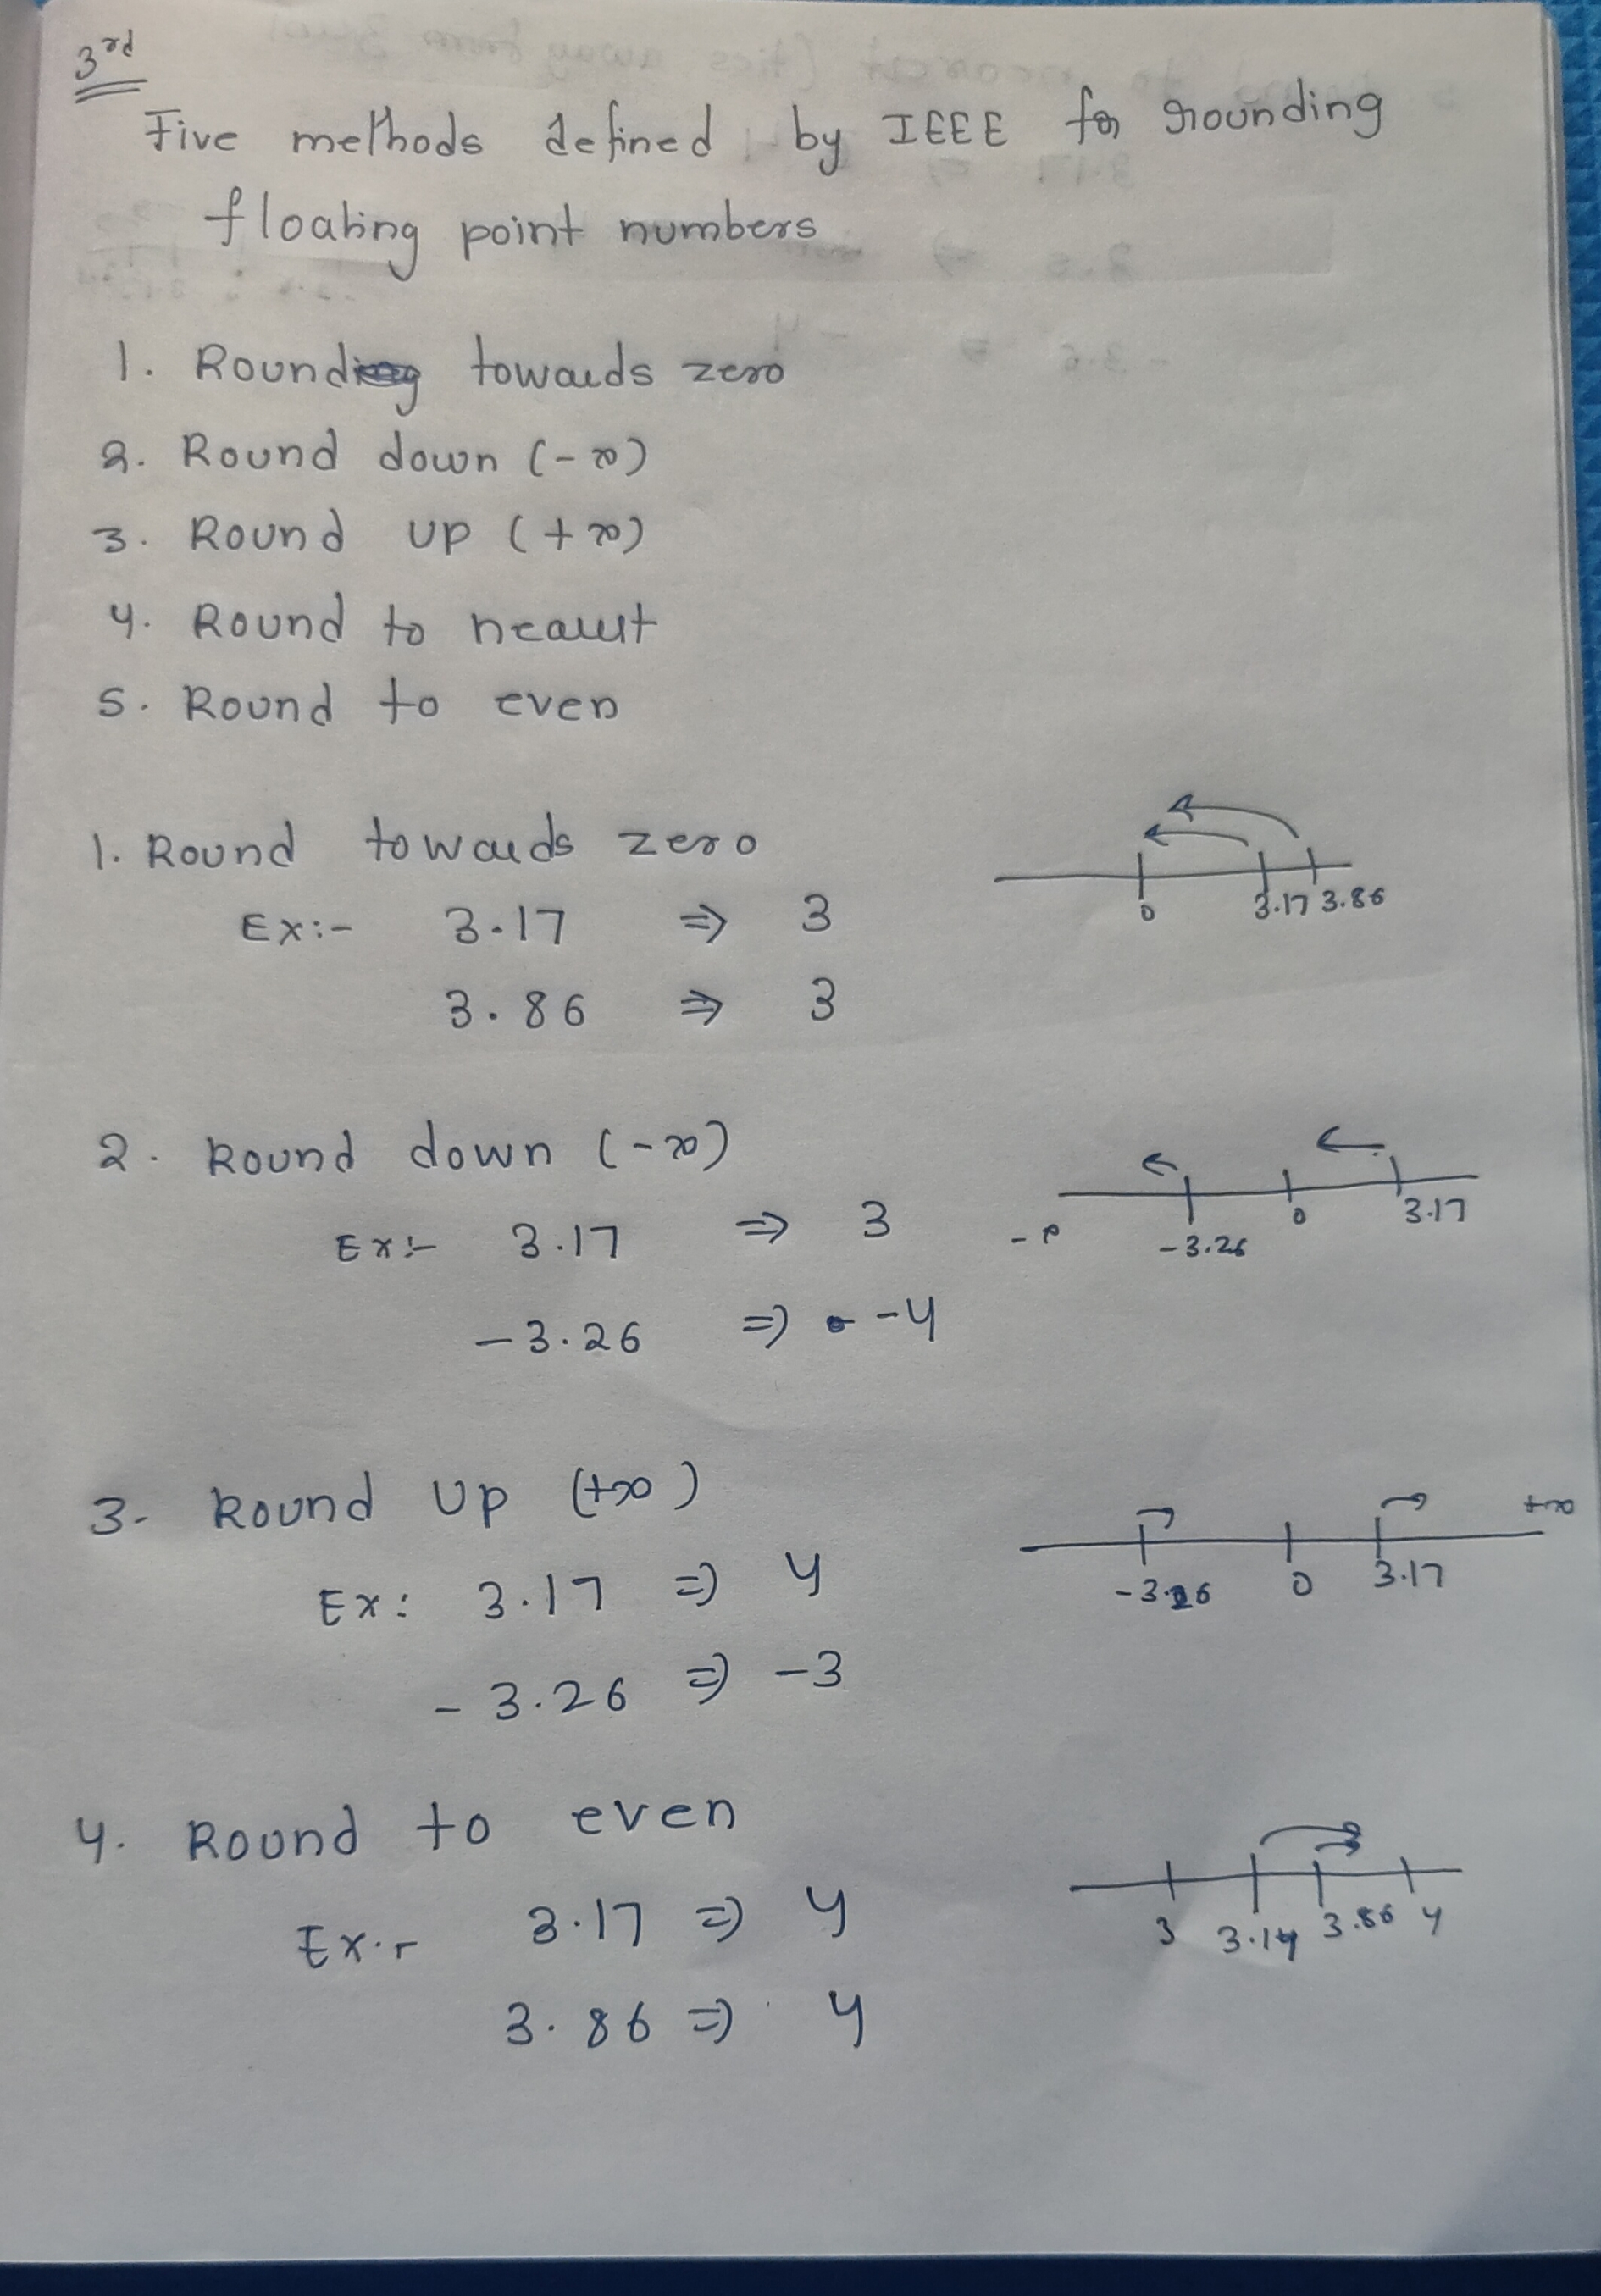 3rd
Five methods defined by IEEE for rounding
floating point numbers
1. Rounding towards zero
2. Round down (-∞)
3. Round up (+∞)
4. Round to nearest
5. Round to even
1. Round towards zero
Ex:- 3.17 ⇒ 3
3.86 ⇒ 3
0 3.17 3.86
2. Round down (-∞)
Ex:- 3.17 ⇒ 3
-3.26 ⇒ -4
-3.26 0 3.17
3. Round up (+∞)
Ex: 3.17 ⇒ 4
-3.26 ⇒ -3
+∞
-3.26 0 3.17
4. Round to even
Ex:- 3.17 ⇒ 4
3.86 ⇒ 4
3 3.17 3.86 4